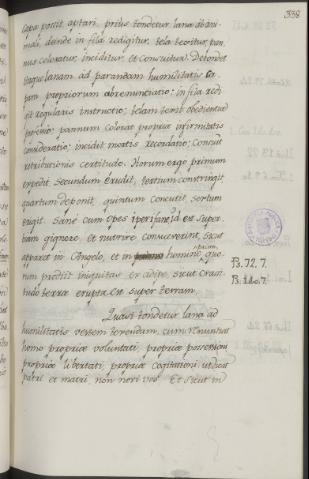 338
Capa possit aptari, prius tondetur lana ab ani-
mali, deinde in fila redigitur, tela texitur, pan-
nus coloratur, inciditur, et consuitur. Detondet
itaque lanam ad parandam humilitatis Ca-
pam propriorum abrenunciatio: in fila redi-
git regularis instructio; telam texit obedientiæ
pannum colorat propriæ infirmitatis
consideratio; incidit mortis recordatio; consuit
retributionis certitudo. Horum ergo primum
expedit, secundum erudit, tertium constringit
quartum deponit, quintum concutit, sextum
erigit. Sane cum opes et super-
biam gignere, et nutrire consueverint, sicut
apparet in Angelo, et in humano
primo, que-
tum prodiit iniquitas ex adipe, sicut crassi-
tudo terræ erupta est super terram.
B. 72. 7.
Quasi tondetur lana ad
humilitatis vestem texendam, cum renuntiat
homo propriæ voluntati, propriæ possessioni
propriæ libertati, propriæ cogitationi, ut dicat
patri et matri, non novi vos. Et sicut in